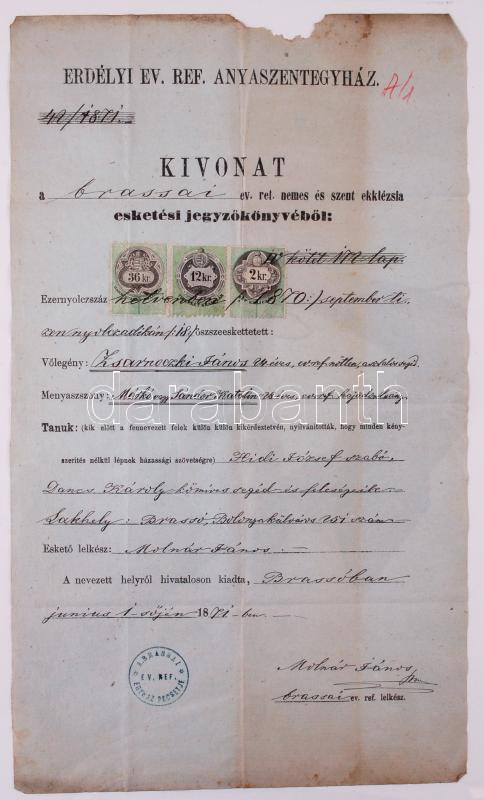 ERDÉLYI EV. REF. ANYASZENTEGYHÁZ.
A/1
42/1871.
KIVONAT
a brassai ev. ref. nemes és szent ekklézsia
esketési jegyzőkönyvéből:
IV kötet 172 lap.
36 kr.
12 kr.
2 kr.
Ezernyolczszáz hetvenedik /:1870:/ september ti
zennyolczadikán /:18:/ öszszeeskettetett:
Vőlegény: Zsarnoczki János 24 éves, ev. ref. nőtlen, asztalos segéd.
Menyaszszony: Mókó vagy Sándor Katalin 26 éves, ev. ref. hajadon
Tanuk: (kik előtt a fennevezett felek külön külön kikérdeztetvén, nyilvánították, hogy minden kény-
szerités nélkül lépnek házassági szövetségre) Hidi József szabó,
Dancs Károly kőmives segéd és feleségeik.
Lakhely: Brassó, Bolonya külváros 251 szám
Eskető lelkész: Molnár János.
A nevezett helyről hivatalosan kiadta, Brassóban
junius 1-sőjén 1871-ben.
A BRASSAI
EV. REF.
EGYHÁZ PECSÉTJE
Molnár János
brassai ev. ref. lelkész.
darabanth